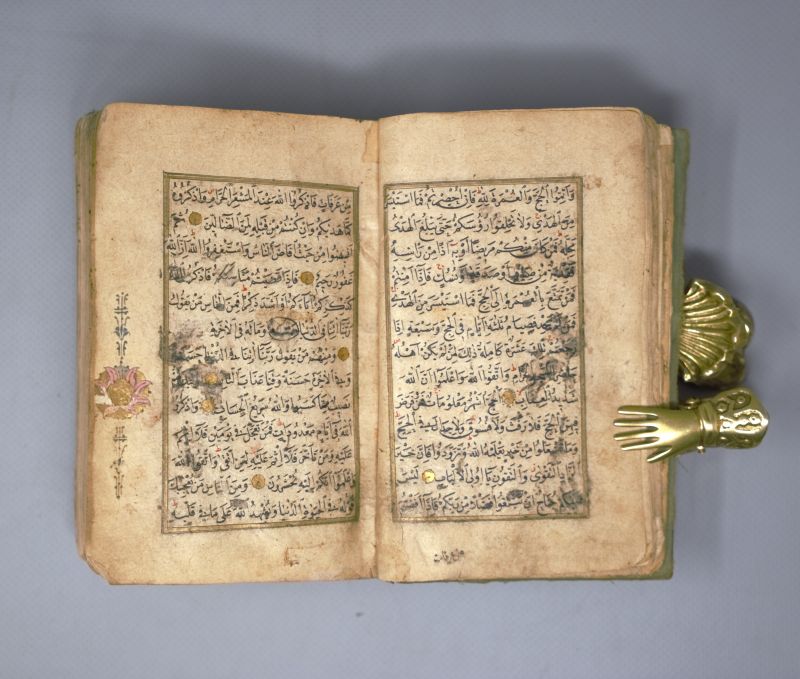 وَاَتِمُّوا الْحَجَّ وَالْعُمْرَةَ لِلّٰهِ فَاِنْ اُحْصِرْتُمْ فَمَا اسْتَيْسَرَ
مِنَ الْهَدْىِ وَلَا تَحْلِقُوا رُؤُسَكُمْ حَتّٰى يَبْلُغَ الْهَدْىُ
مَحِلَّهُ فَمَنْ كَانَ مِنْكُمْ مَرِيضًا اَوْ بِهِ اَذًى مِنْ رَأْسِهِ
فَفِدْيَةٌ مِنْ صِيَامٍ اَوْ صَدَقَةٍ اَوْ نُسُكٍ فَاِذَا اَمِنْتُمْ
فَمَنْ تَمَتَّعَ بِالْعُمْرَةِ اِلَى الْحَجِّ فَمَا اسْتَيْسَرَ مِنَ الْهَدْىِ
فَمَنْ لَمْ يَجِدْ فَصِيَامُ ثَلٰثَةِ اَيَّامٍ فِى الْحَجِّ وَسَبْعَةٍ اِذَا
رَجَعْتُمْ تِلْكَ عَشَرَةٌ كَامِلَةٌ ذٰلِكَ لِمَنْ لَمْ يَكُنْ اَهْلُهُ
حَاضِرِى الْمَسْجِدِ الْحَرَامِ وَاتَّقُوا اللّٰهَ وَاعْلَمُوا اَنَّ اللّٰهَ
شَدِيدُ الْعِقَابِ اَلْحَجُّ اَشْهُرٌ مَعْلُومَاتٌ فَمَنْ فَرَضَ
فِيهِنَّ الْحَجَّ فَلَا رَفَثَ وَلَا فُسُوقَ وَلَا جِدَالَ فِى الْحَجِّ
وَمَا تَفْعَلُوا مِنْ خَيْرٍ يَعْلَمْهُ اللّٰهُ وَتَزَوَّدُوا فَاِنَّ خَيْرَ
الزَّادِ التَّقْوٰى وَاتَّقُونِ يَا اُولِى الْاَلْبَابِ لَيْسَ
عَلَيْكُمْ جُنَاحٌ اَنْ تَبْتَغُوا فَضْلًا مِنْ رَبِّكُمْ فَاِذَا اَفَضْتُمْ
من عرفات
مِنْ عَرَفَاتٍ فَاذْكُرُوا اللّٰهَ عِنْدَ الْمَشْعَرِ الْحَرَامِ وَاذْكُرُوهُ
كَمَا هَدٰيكُمْ وَاِنْ كُنْتُمْ مِنْ قَبْلِهِ لَمِنَ الضَّالِّينَ ثُمَّ
اَفِيضُوا مِنْ حَيْثُ اَفَاضَ النَّاسُ وَاسْتَغْفِرُوا اللّٰهَ اِنَّ اللّٰهَ
غَفُورٌ رَحِيمٌ فَاِذَا قَضَيْتُمْ مَنَاسِكَكُمْ فَاذْكُرُوا اللّٰهَ
كَذِكْرِكُمْ اٰبَاءَكُمْ اَوْ اَشَدَّ ذِكْرًا فَمِنَ النَّاسِ مَنْ يَقُولُ
رَبَّنَا اٰتِنَا فِى الدُّنْيَا وَمَالَهُ فِى الْاٰخِرَةِ
وَمِنْهُمْ مَنْ يَقُولُ رَبَّنَا اٰتِنَا فِى الدُّنْيَا حَسَنَةً
وَفِى الْاٰخِرَةِ حَسَنَةً وَقِنَا عَذَابَ النَّارِ اُولٰئِكَ لَهُمْ
نَصِيبٌ مِمَّا كَسَبُوا وَاللّٰهُ سَرِيعُ الْحِسَابِ وَاذْكُرُوا
اللّٰهَ فِى اَيَّامٍ مَعْدُودَاتٍ فَمَنْ تَعَجَّلَ فِى يَوْمَيْنِ فَلَا اِثْمَ
عَلَيْهِ وَمَنْ تَاَخَّرَ فَلَا اِثْمَ عَلَيْهِ لِمَنِ اتَّقٰى وَاتَّقُوا اللّٰهَ
وَاعْلَمُوا اَنَّكُمْ اِلَيْهِ تُحْشَرُونَ وَمِنَ النَّاسِ مَنْ يُعْجِبُكَ
قَوْلُهُ فِى الْحَيٰوةِ الدُّنْيَا وَيُشْهِدُ اللّٰهَ عَلٰى مَا فِى قَلْبِهِ